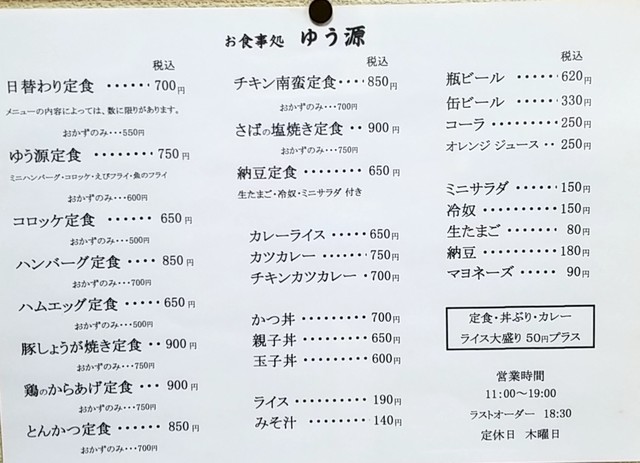 お食事処 ゆう源
税込
日替わり定食 ・・・・・・ 700円
メニューの内容によっては、数に限りがあります。
おかずのみ・・・550円
ゆう源定食 ・・・・・・・・ 750円
ミニハンバーグ・コロッケ・えびフライ・魚のフライ
おかずのみ・・・600円
コロッケ定食 ・・・・・・ 650円
おかずのみ・・・500円
ハンバーグ定食 ・・・・ 850円
おかずのみ・・・700円
ハムエッグ定食・・・・・650円
おかずのみ・・・500円
豚しょうが焼き定食 ・・・ 900円
おかずのみ・・・750円
鶏のからあげ定食 ・・・ 900円
おかずのみ・・・750円
とんかつ定食 ・・・・・・ 850円
おかずのみ・・・700円
税込
チキン南蛮定食・・・・850円
おかずのみ・・・700円
さばの塩焼き定食・・ 900円
おかずのみ・・・750円
納豆定食 ・・・・・・・・ 650円
生たまご・冷奴・ミニサラダ 付き
カレーライス・・・・・650円
カツカレー ・・・・・・・750円
チキンカツカレー ・700円
かつ丼 ・・・・・・・・・ 700円
親子丼 ・・・・・・・・・ 650円
玉子丼 ・・・・・・・・・ 600円
ライス ・・・・・・・・・ 190円
みそ汁 ・・・・・・・・ 140円
税込
瓶ビール ・・・・・・ 620円
缶ビール ・・・・・・ 330円
コーラ ・・・・・・・・・ 250円
オレンジ ジュース ・・ 250円
ミニサラダ ・・・・・150円
冷奴 ・・・・・・・・・・150円
生たまご ・・・・・・ 80円
納豆 ・・・・・・・・・180円
マヨネーズ ・・・・ 90円
定食・丼ぶり・カレー
ライス大盛り 50円プラス
営業時間
11:00～19:00
ラストオーダー 18:30
定休日 木曜日